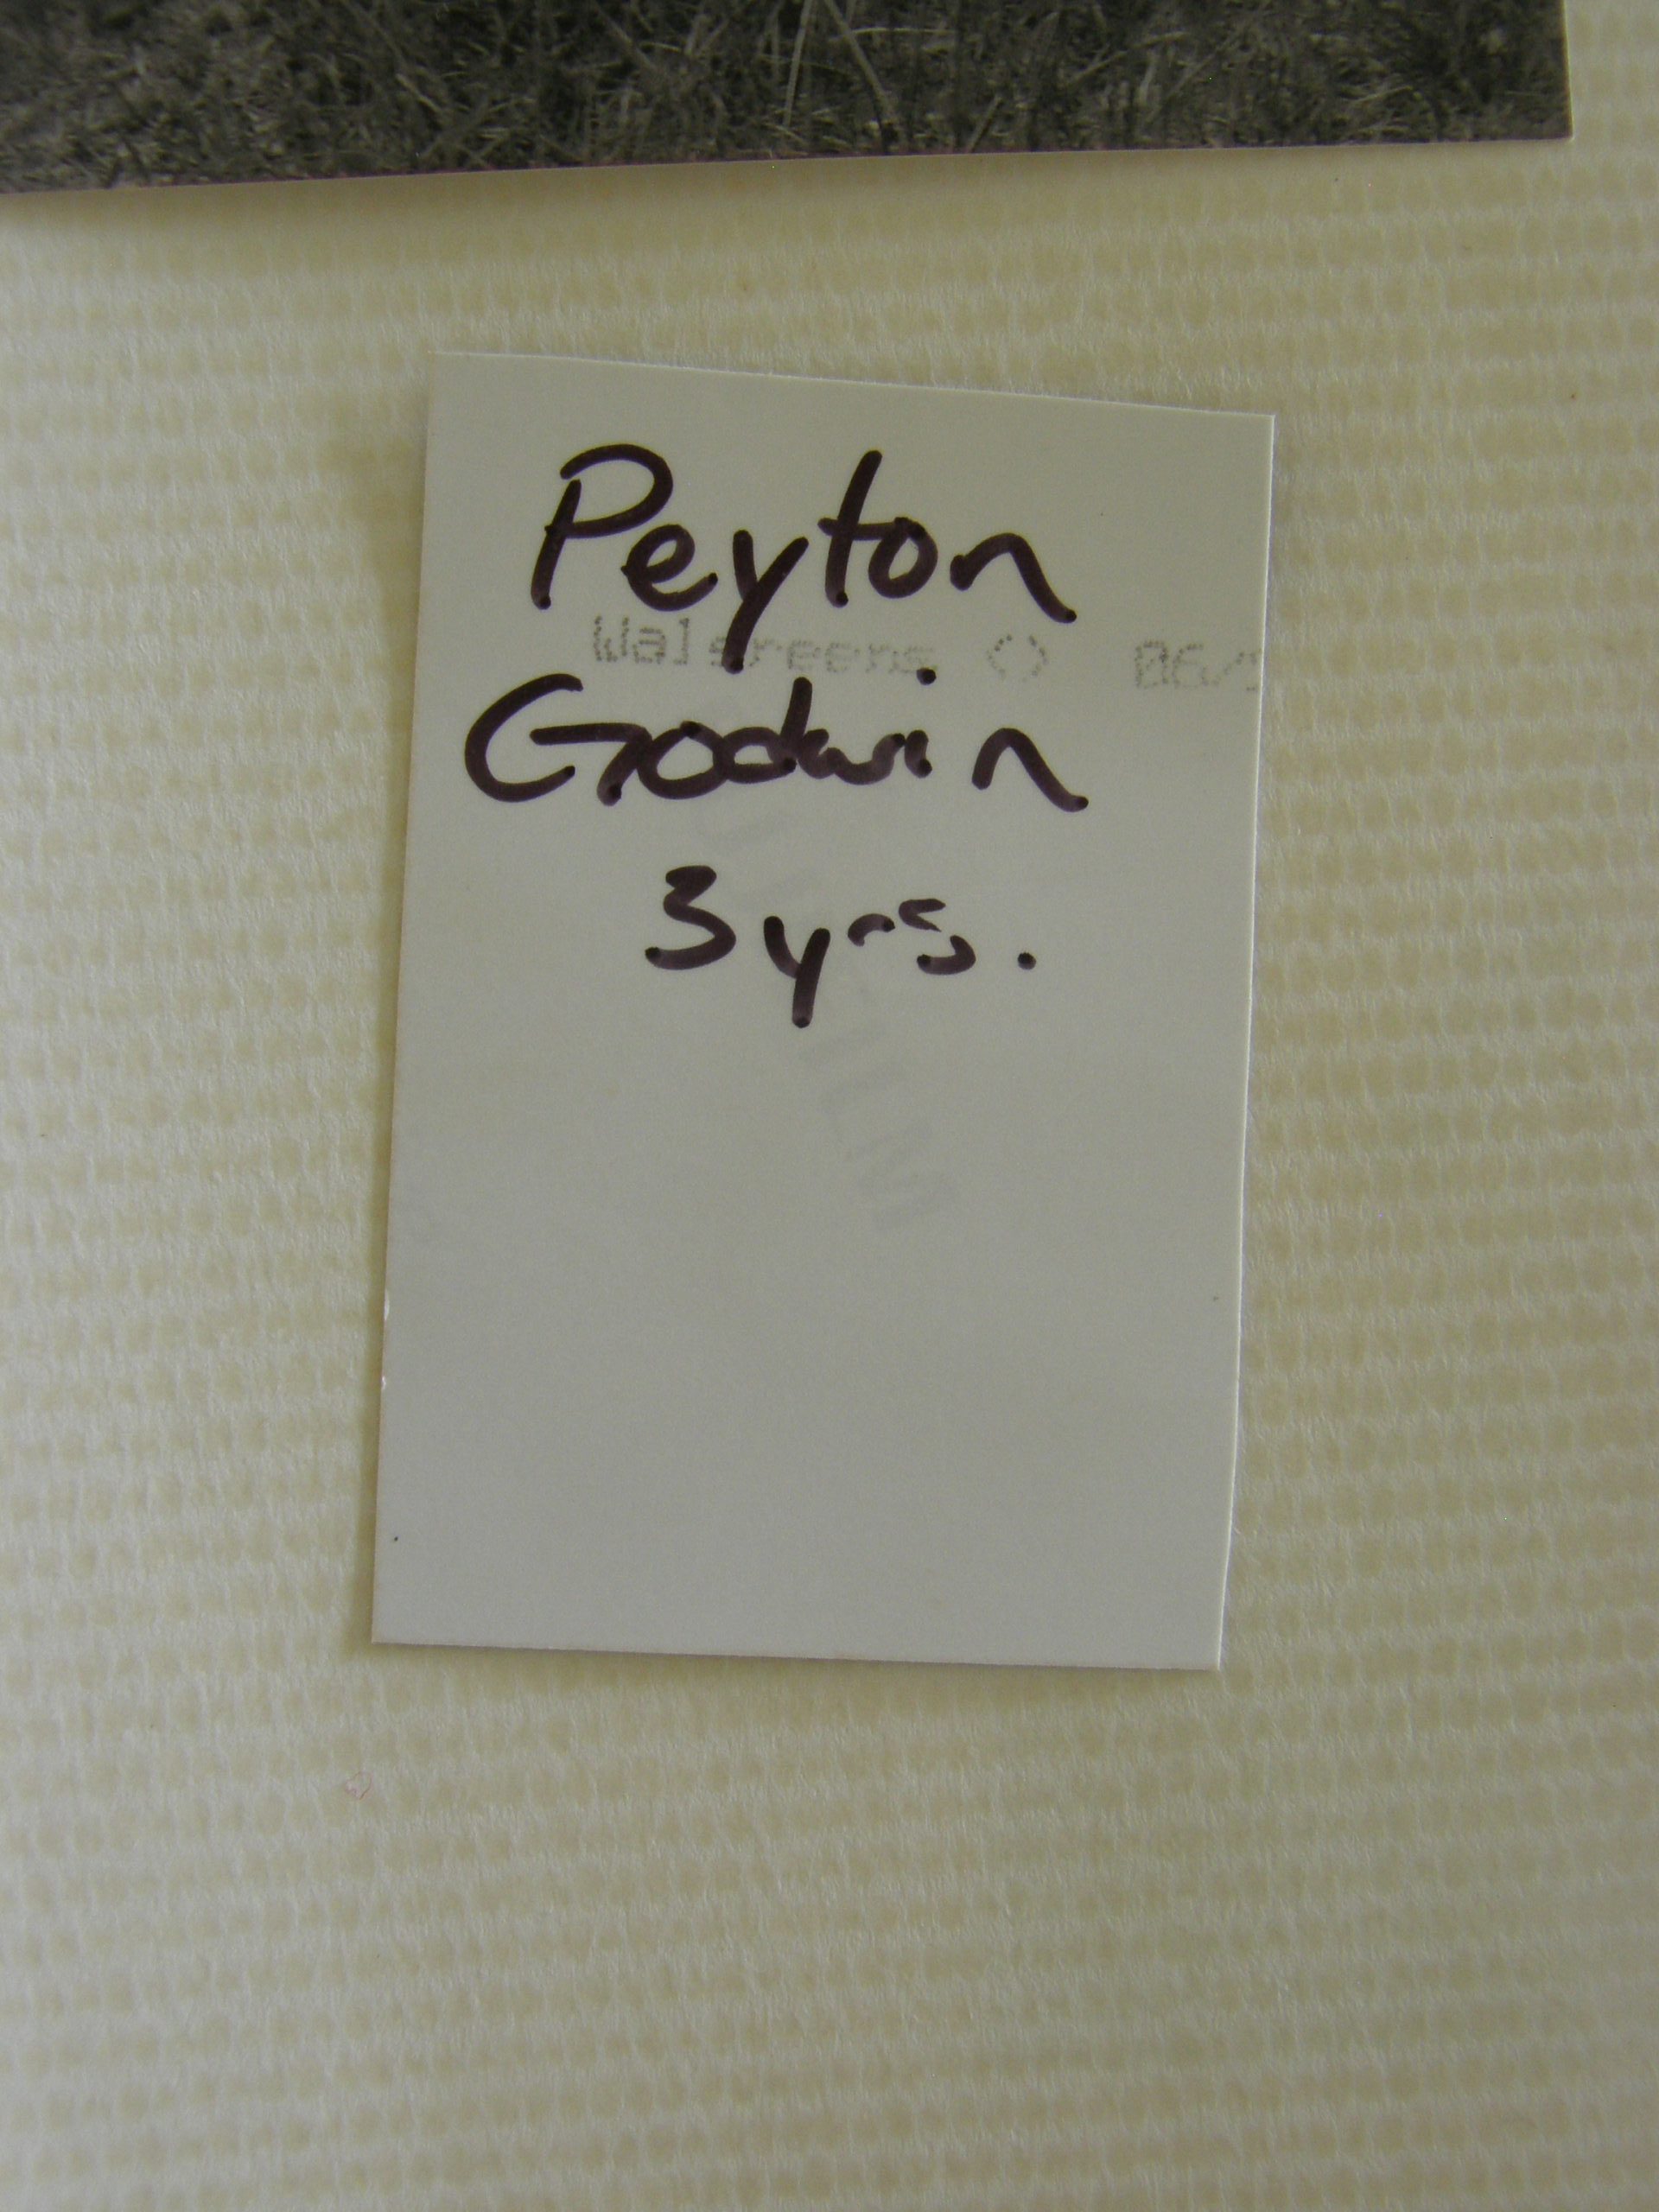 Peyton
Walgreens <> 06/
Godwin
3 yrs.